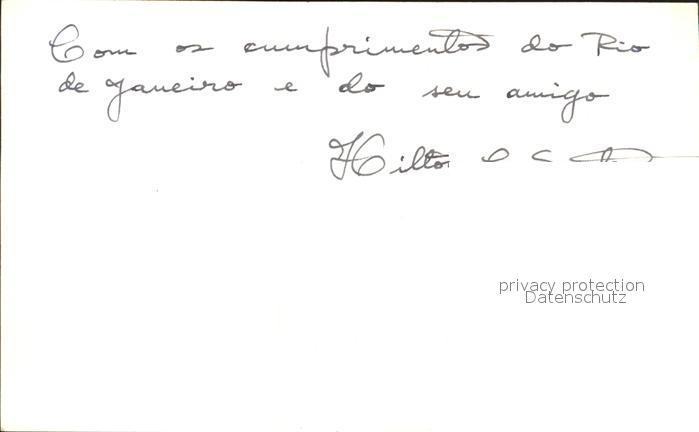 Com os cumprimentos do Rio
de Janeiro e do seu amigo
Hilton
privacy protection
Datenschutz